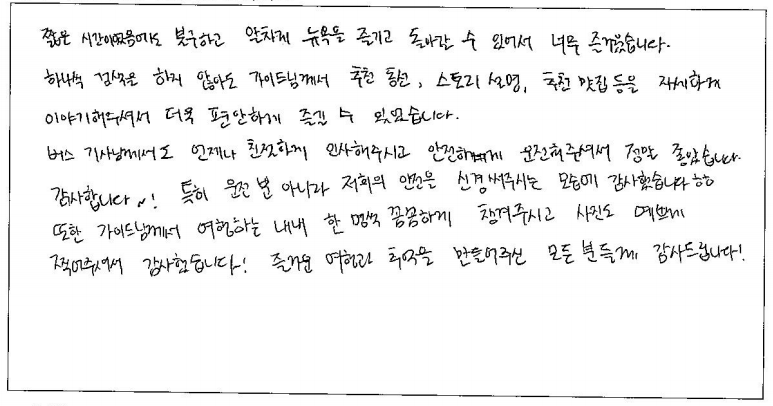 짧은 시간이었음에도 불구하고 알차게 뉴욕을 즐기고 돌아갈 수 있어서 너무 즐거웠습니다.
하나씩 검색을 하지 않아도 가이드님께서 추천 동선, 스토리 설명, 추천 맛집 등을 자세하게
이야기해주셔서 더욱 편안하게 즐길 수 있었습니다.
버스 기사님께서도 언제나 친절하게 인사해주시고 안전하게 운전해주셔서 정말 좋았습니다.
감사합니다~! 특히 운전 뿐 아니라 저희의 안전을 신경써주시는 모습에 감사했습니다ㅎㅎ
또한 가이드님께서 여행하는 내내 한 명씩 꼼꼼하게 챙겨주시고 사진도 예쁘게
찍어주셔서 감사했습니다! 즐거운 여행과 추억을 만들어주신 모든 분들께 감사드립니다!